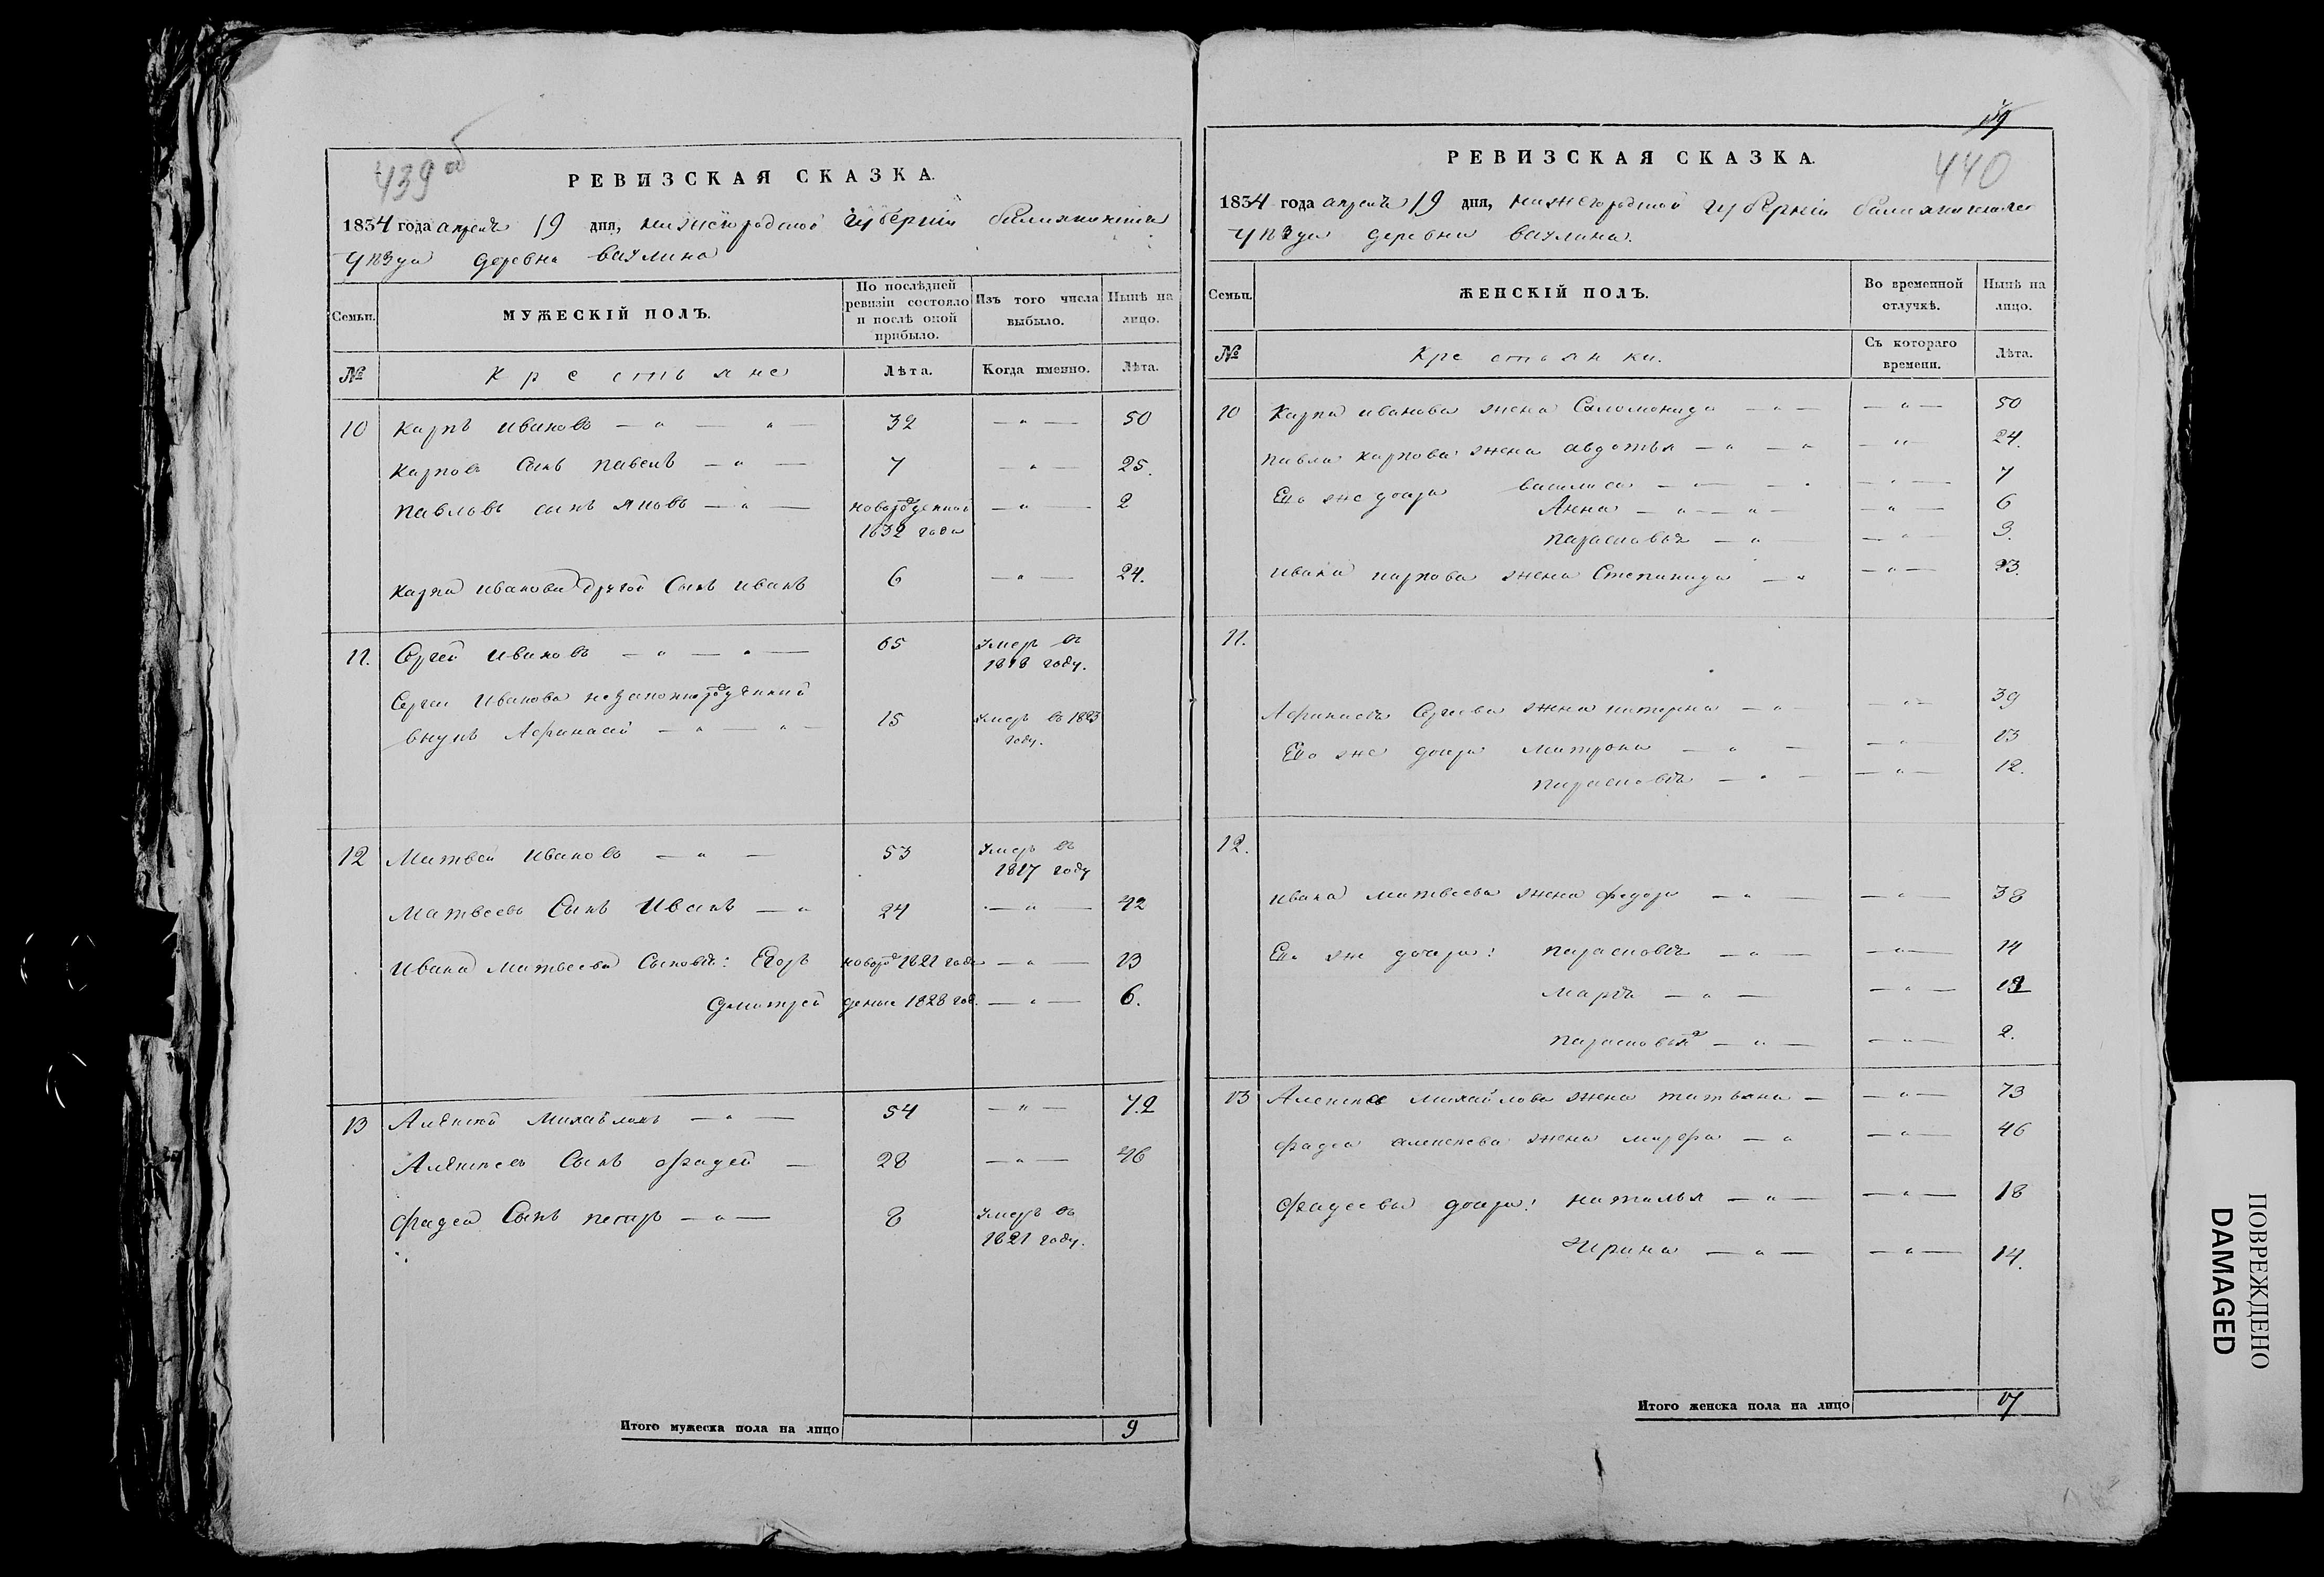 439 об
РЕВИЗСКАЯ СКАЗКА.
1834 года апреля 19 дня, нижегородской губернии балахнинскаго
уѣзда деревни ваулина
Семьи.
МУЖЕСКІЙ ПОЛЪ.
По послѣдней ревизіи состояло и послѣ оной прибыло.
Изъ того числа выбыло.
Нынѣ на лицо.
№
Крестьяне
Лѣта.
Когда именно.
Лѣта.
10 Карпъ Ивановъ — „ — „ — 32 — „ — 50
Карповъ Сынъ павелъ — „ — 7 — „ — 25.
павловъ сынъ яковъ — „ — новорожденной — „ — 2
1832 года
Карпа Иванова другой Сынъ иванъ 6 — „ — 24.
11. Сергей Ивановъ — „ — „ — 65 умеръ въ
1818 году.
Сергея Иванова незаконнорожденный
внукъ Афанасей — „ — „ — 15 умеръ въ 1823
году.
12 Матвей Ивановъ — „ — 53 умеръ въ
1817 году
Матвеевъ Сынъ Иванъ — „ 24 — „ — 42
Ивана Матвеева Сыновья: Егоръ новорож 1821 года — „ — 13
Дмитрей денные 1828 год. — „ — 6.
13 Алексей Михайловъ — „ — 54 — „ — 72
Алексеевъ Сынъ Фадей — 28 — „ — 46
Фадея Сынъ петръ — „ — 8 умеръ въ
1821 году.
Итого мужеска пола на лицо 9
440
РЕВИЗСКАЯ СКАЗКА.
1834 года апреля 19 дня, нижегородской губерніи балахнинскаго
уѣзда деревни ваулина.
Семьи.
ЖЕНСКІЙ ПОЛЪ.
Во временной отлучкѣ.
Нынѣ на лицо.
№
Крестьянки.
Съ котораго времени.
Лѣта.
10 Карпа иванова жена Саломонида — „ — — „ — 50
павла карпова жена авдотья — „ — „ — „ — 24.
Его же дочери василиса — — „ — 7
Анна — „ — „ — — „ — 6
парасковья — „ — — „ — 3.
ивана карпова жена Степанида — „ — „ — 23.
11.
Афанасья Сергеева жена катерина — „ — — „ — 39
Его же дочери матрона — „ — — „ — 13
парасковья — „ — — „ — 12.
12.
ивана матвеева жена федора — „ — — „ — 38
Его же дочери: парасковья — „ — — „ — 14
марья — „ — — „ — 12
парасковья 2 — „ — — „ — 2.
13 Алексея михайлова жена татьяна — — „ — 73
Фадея алексеева жена марфа — „ — „ — 46
Фадеевы дочери: наталья — „ — — „ — 18
Ирина — „ — — „ — 14.
Итого женска пола на лицо 17
ПОВРЕЖДЕНО
DAMAGED